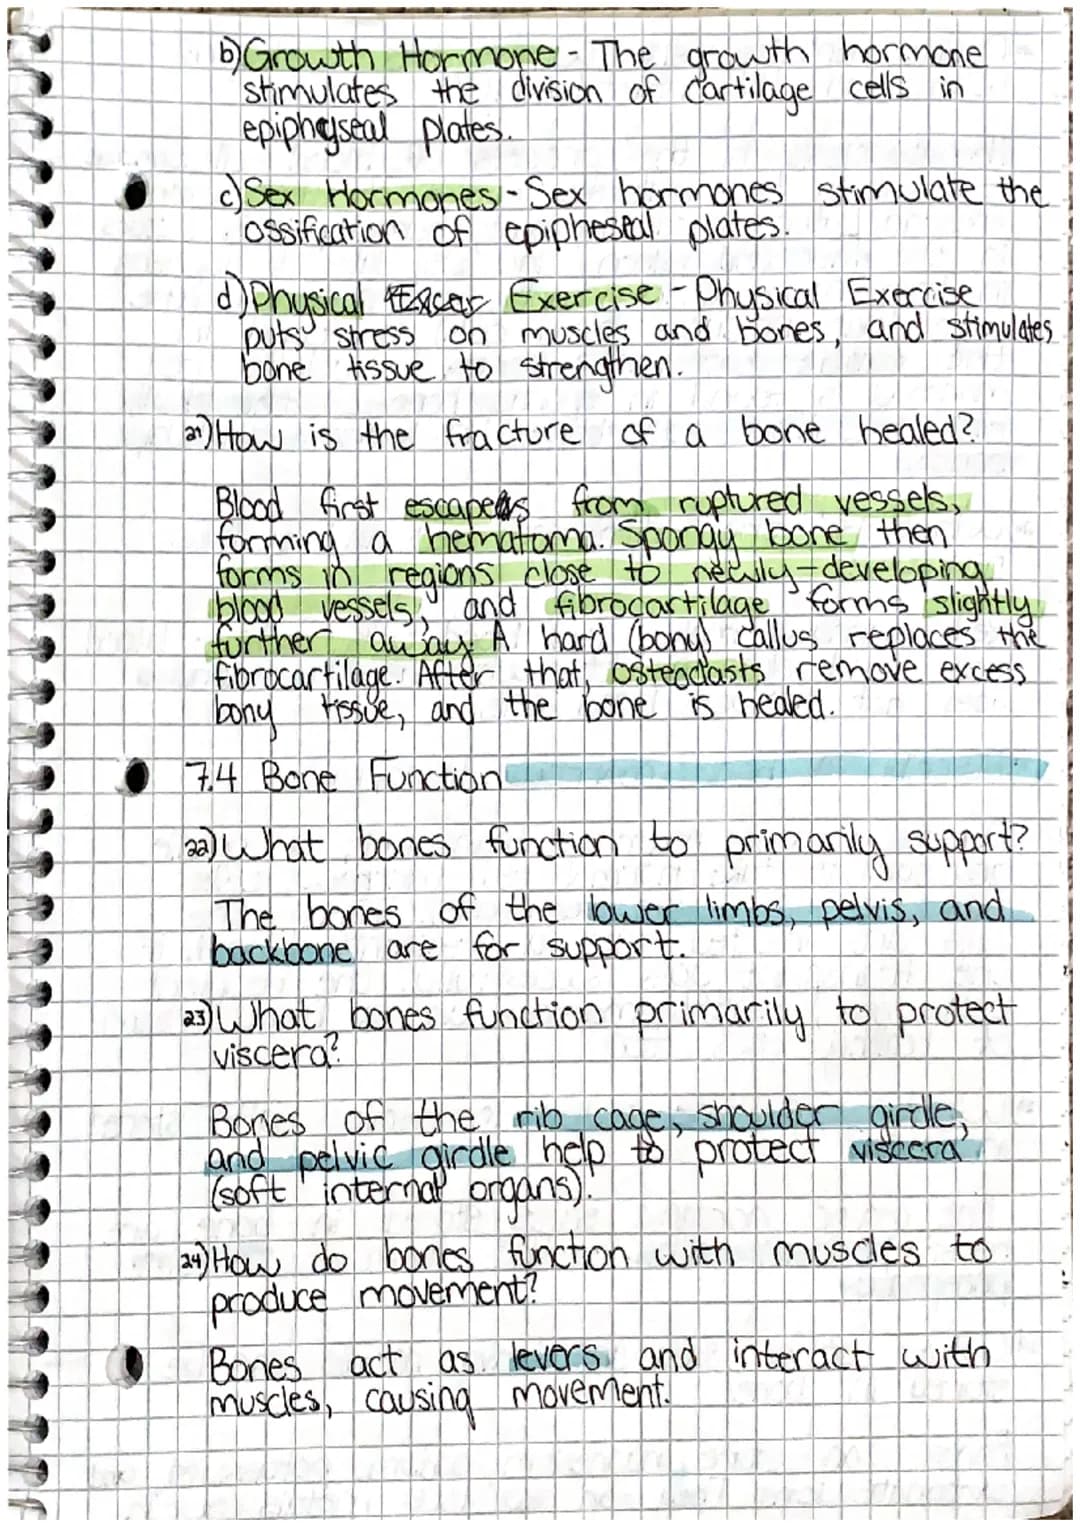 b) Growth Hormone - The growth hormone
stimulates the division of cartilage cells in
epiphyseal plates.
c) Sex Hormones - Sex hormones stimulate the
ossification of epipheseal plates.
d) Physical Exercise - Physical Exercise
puts stress on muscles and bones, and stimulates
bone tissue to strengthen.
21) How is the fracture of a bone healed?
Blood first escapes from ruptured vessels,
forming a hematoma. Spongy bone then
forms in regions close to newly-developing
blood vessels, and fibrocartilage forms slightly
further away. A hard (bony) callus replaces the
fibrocartilage. After that, osteoclasts remove excess
bony tissue, and the bone is healed.
7.4 Bone Function
22) What bones function to primarily support?
The bones of the lower limbs, pelvis, and
backbone are for support.
23) What bones function primarily to protect
viscera?
Bones of the rib cage, shoulder girdle,
and pelvic girdle help to protect viscera
(soft internal organs).
24) How do bones function with muscles to
produce movement?
Bones act as levers and interact with
muscles, causing movement.